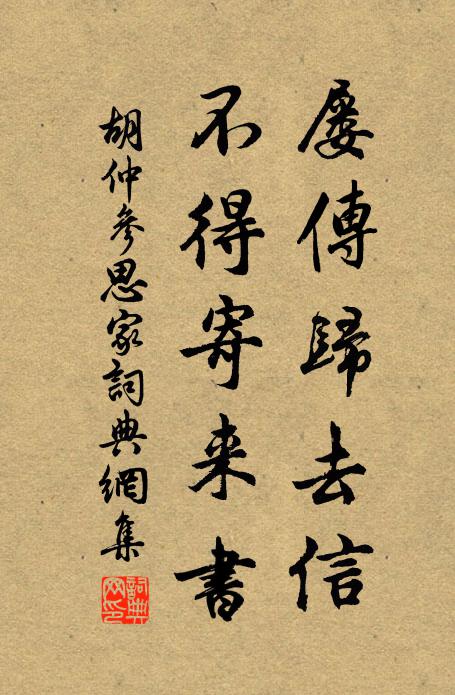 屡傳歸去信
不得寄来書
胡仲參思家詞典網集
詞典網印